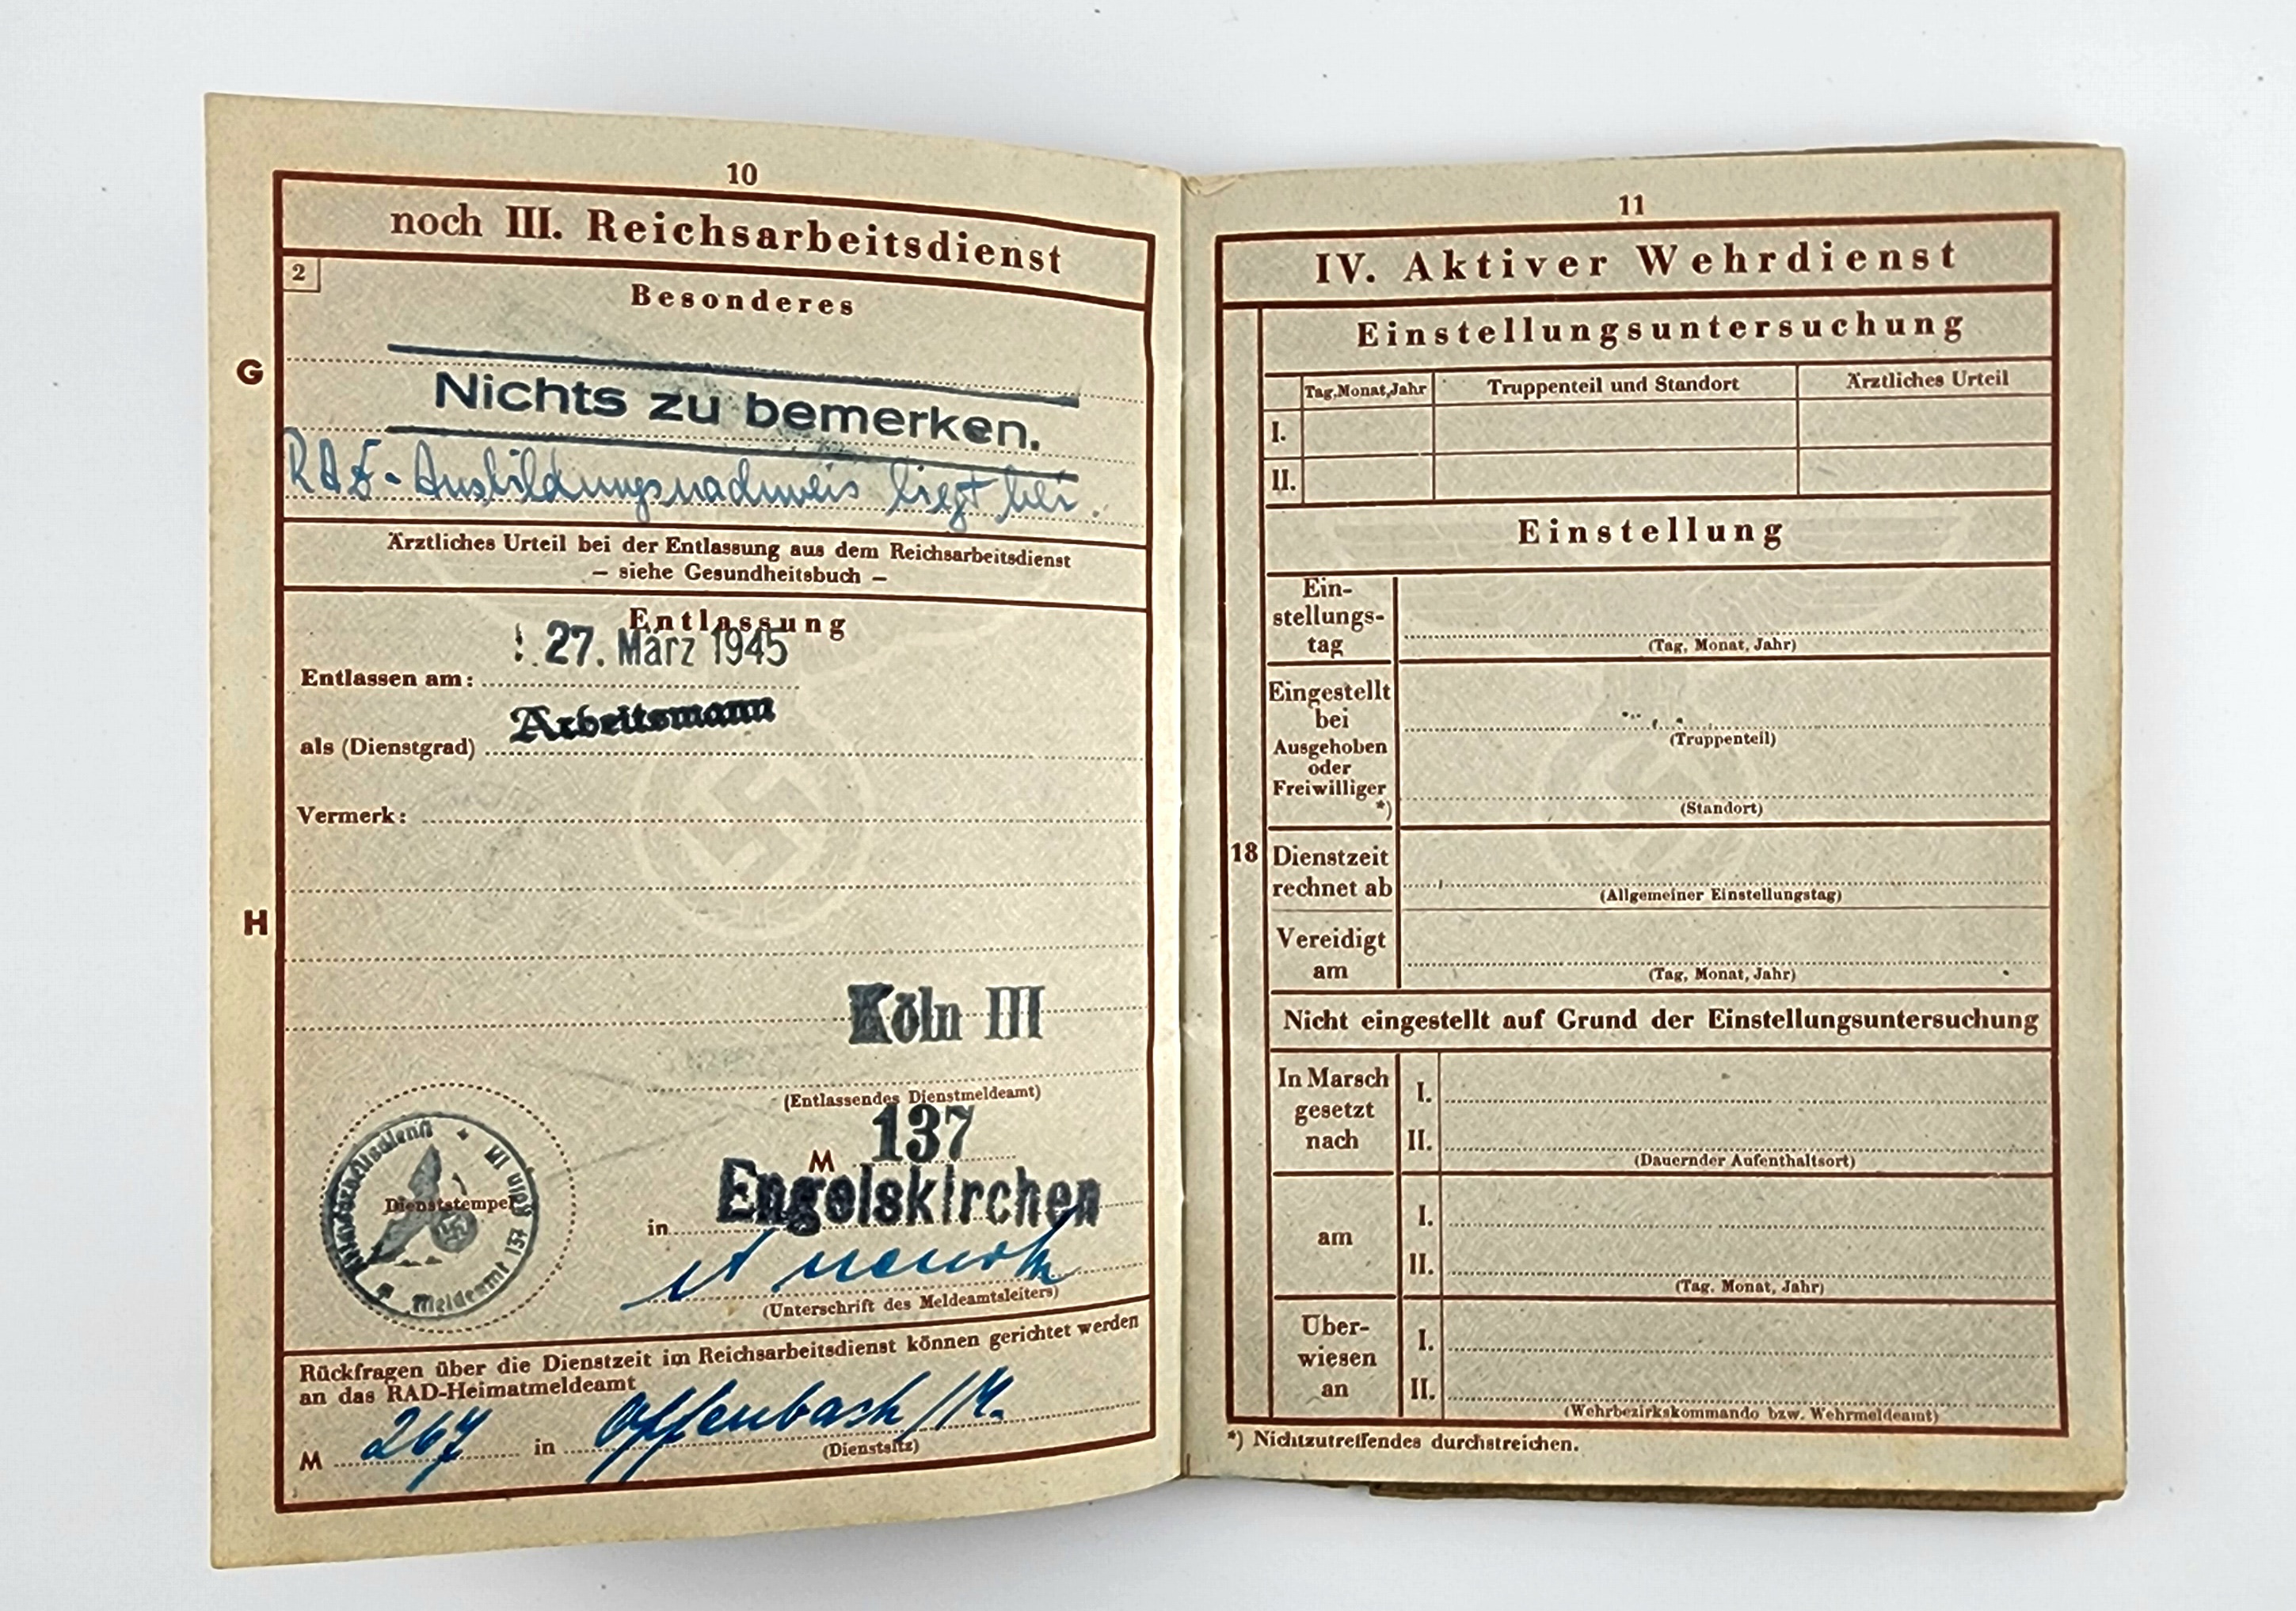 10
noch III. Reichsarbeitsdienst
2
Besonderes
G
Nichts zu bemerken.
RAD-Ausbildungsnachweis liegt bei.
Ärztliches Urteil bei der Entlassung aus dem Reichsarbeitsdienst
– siehe Gesundheitsbuch –
Entlassung
27. März 1945
Entlassen am:
Arbeitsmann
als (Dienstgrad)
Vermerk:
H
Köln III
(Entlassendes Dienstmeldeamt)
M 137
in Engelskirchen
(Unterschrift des Meldeamtsleiters)
Reichsarbeitsdienst
Köln III
Meldeamt 137
Dienststempel
Rückfragen über die Dienstzeit im Reichsarbeitsdienst können gerichtet werden
an das RAD-Heimatmeldeamt
M 267 in Offenbach / M.
(Dienstsitz)
11
IV. Aktiver Wehrdienst
Einstellungsuntersuchung
Tag, Monat, Jahr Truppenteil und Standort Ärztliches Urteil
I.
II.
Einstellung
Ein-
stellungs-
tag
(Tag, Monat, Jahr)
Eingestellt
bei
(Truppenteil)
Ausgehoben
oder
Freiwilliger
*)
(Standort)
18
Dienstzeit
rechnet ab
(Allgemeiner Einstellungstag)
Vereidigt
am
(Tag, Monat, Jahr)
Nicht eingestellt auf Grund der Einstellungsuntersuchung
In Marsch
gesetzt
nach
I.
II.
(Dauernder Aufenthaltsort)
am
I.
II.
(Tag, Monat, Jahr)
Über-
wiesen
an
I.
II.
(Wehrbezirkskommando bzw. Wehrmeldeamt)
*) Nichtzutreffendes durchstreichen.